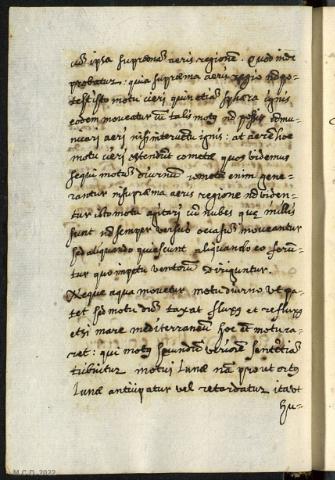 tũ ipsa supræma aeris regionẽ. Quod inde
probatur: quia supræma aeris regio nõ po-
test isto motu cieri quin etiã sphæra ignis
eodem moveatur cũ talis motus nõ possit cõmu-
nicari aeri nisi interventu ignis: at aerẽ hoc
motu cieri ostendunt cometæ quos videmus
sequi motum diurnũ cometæ enim gene-
rantur in supræma aeris regione nõ viden-
tur isto motu agitari cũ nubes quę in illis
sunt nõ semper versus occasũ moveantur
sed aliquando quiescunt aliquando eo ferun-
tur quo impetu ventorum diriguntur.
Neque aqua movetur motu diurno ut pa-
tet sed motu diu taxat fluxus et refluxus
etsi mare mediterraneum hoc et motu ca-
ret: qui motus secundũ veriorẽ sententiã
tribuitur motui lunæ nã prout ortus
Lunæ anticipatur vel retardatur ita et
hu-
M.C.D. 2022